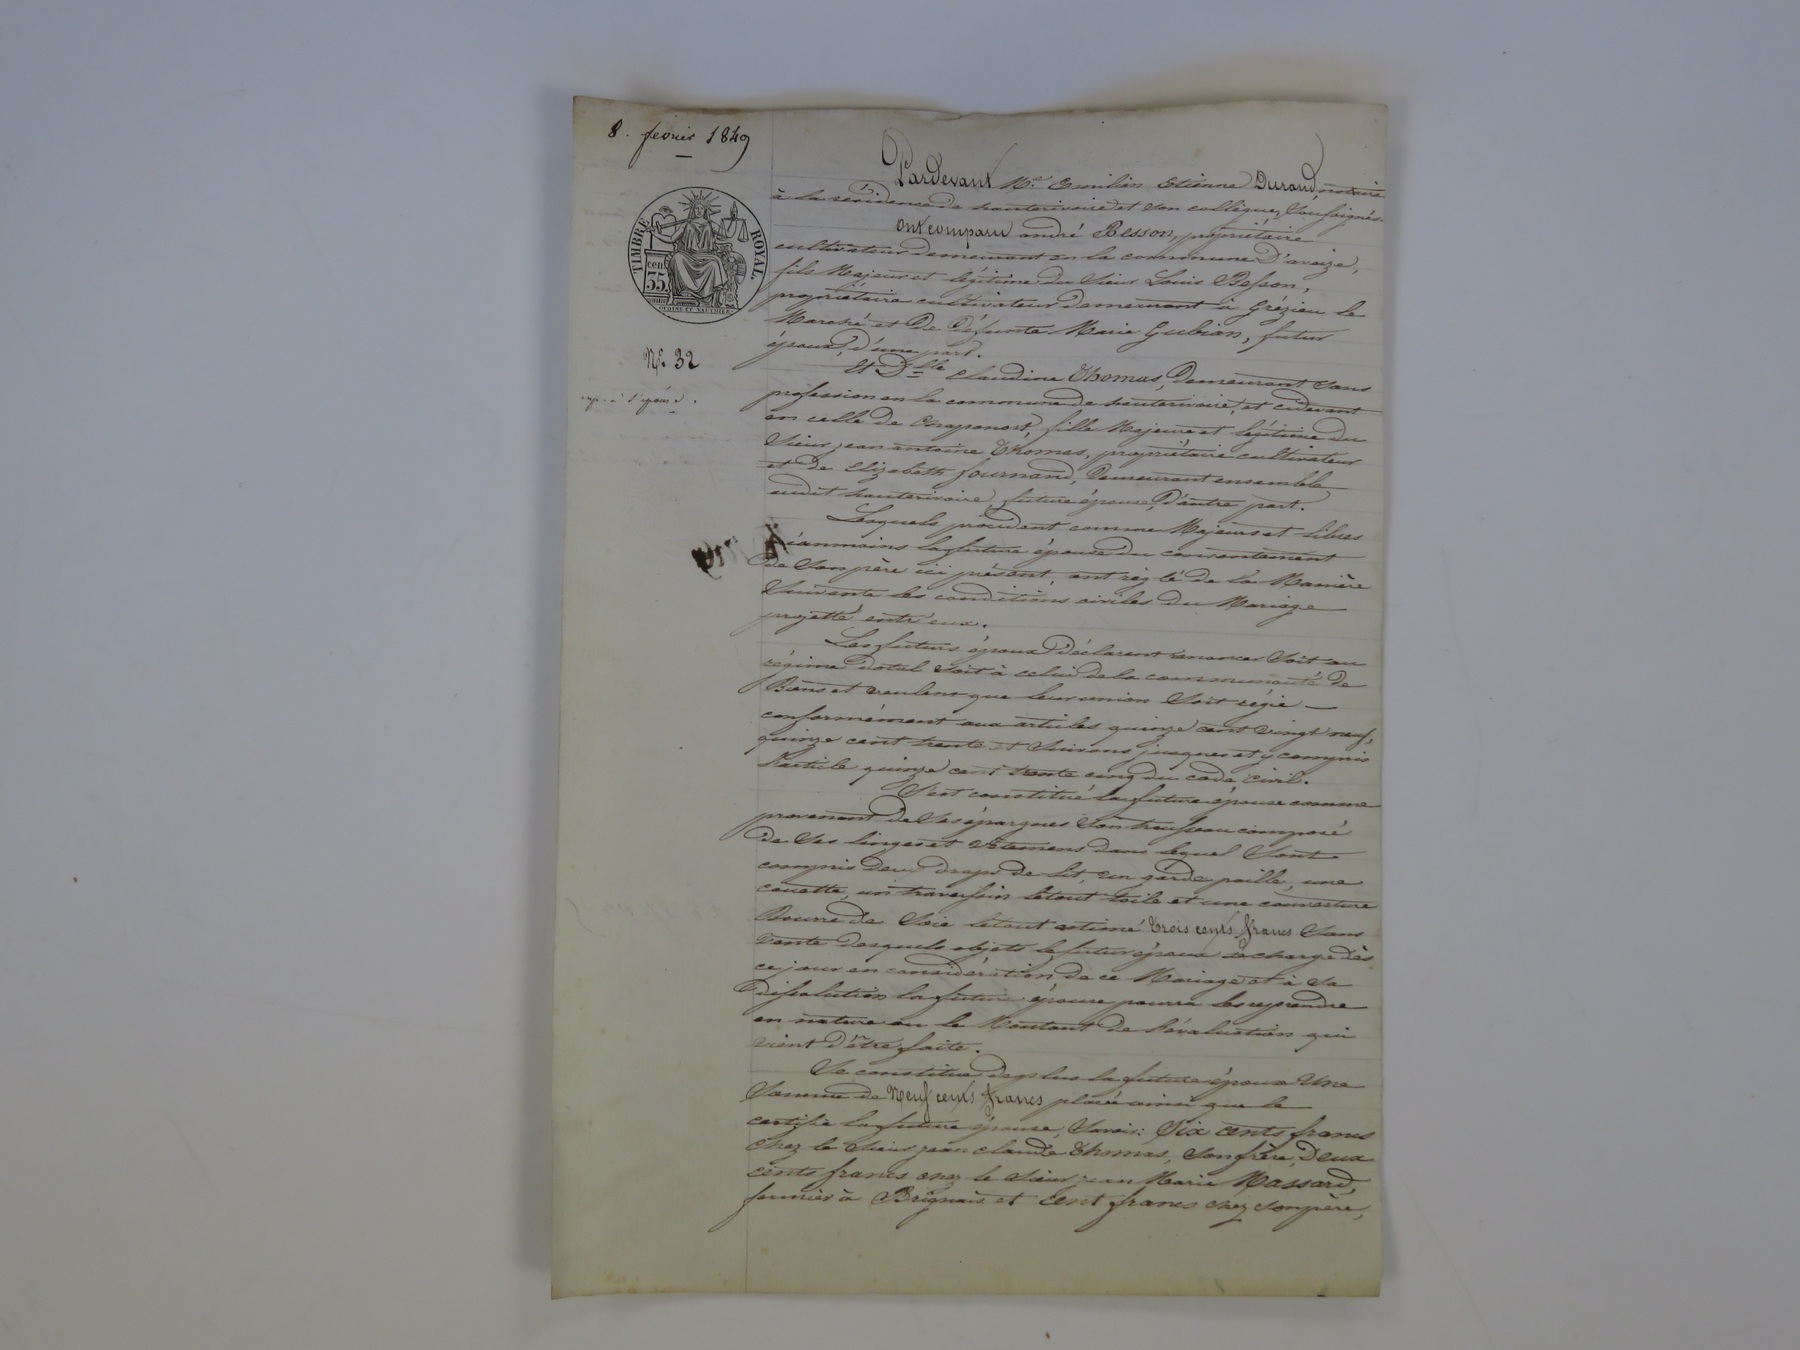 8. fevrier 1849
TIMBRE ROYAL.
cen
35.
OUDINE ET VAUTHIER
N°. 32
exp. à l'épouse.
Pardevant Me. Emilien Etienne Durand, notaire
à la résidence de hauterivoire et son collègue, Soussignés.
Ont comparu andré Besson, propriétaire
cultivateur demeurant en la commune D'aveize,
fils Majeur et légitime du Sieur Louis Besson,
propriétaire cultivateur demeurant à Grézieu le
Marché et De Défunte Marie Gubian, futur
époux, d'une part.
Et Dlle Claudine Thomas, Demeurant Sans
profession en la commune de hauterivoire, et cidevant
en celle de Chaponost, fille Majeure et légitime du
Sieur jean antoine Thomas, propriétaire cultivateur
et De Elizabeth fournand, Demeurant ensemble
audit hauterivoire, future épouse, D'autre part.
Lesquels procédent comme Majeurs et libres
Néanmoins la future épouse du consentement
de Son père ici présent, ont réglé de la Manière
Suivante les conditions civiles du Mariage
projetté entr'eux.
Les futurs époux Déclarent renoncer Soit au
régime Dotal Soit à celui de la communauté de
Biens et veulent que leur union Soit régie
conformément aux articles quinze cent vingt neuf,
quinze cent trente et Suivans jusques et y compris
l'article quinze cent trente cinq du code civil.
S'est constitué la future épouse comme
provenant de Ses épargnes Son trousseau composé
de Ses linges et vêtemens dans lequel Sont
compris deux Draps De Lit, un garde paille, une
couette, un traversin le tout toile et une couverture
Bourre de Soie le tout estimé Trois cents francs Sans
vente desquels objets le futur époux se charge dès
ce jour en considération de ce Mariage et à Sa
dissolution la future épouse pourra les reprendre
en nature ou le Montant de l'évaluation qui
vient d'être faite.
Se constitue de plus la future épouse Une
Somme de Neuf cents francs placée ainsi que le
certifie la future épouse, Savoir: Six cents francs
chez le Sieur jean claude Thomas, Son frère, Deux
cents francs chez le Sieur jean Marie Massard,
fermier à Brignais et Cent francs chez Son père,